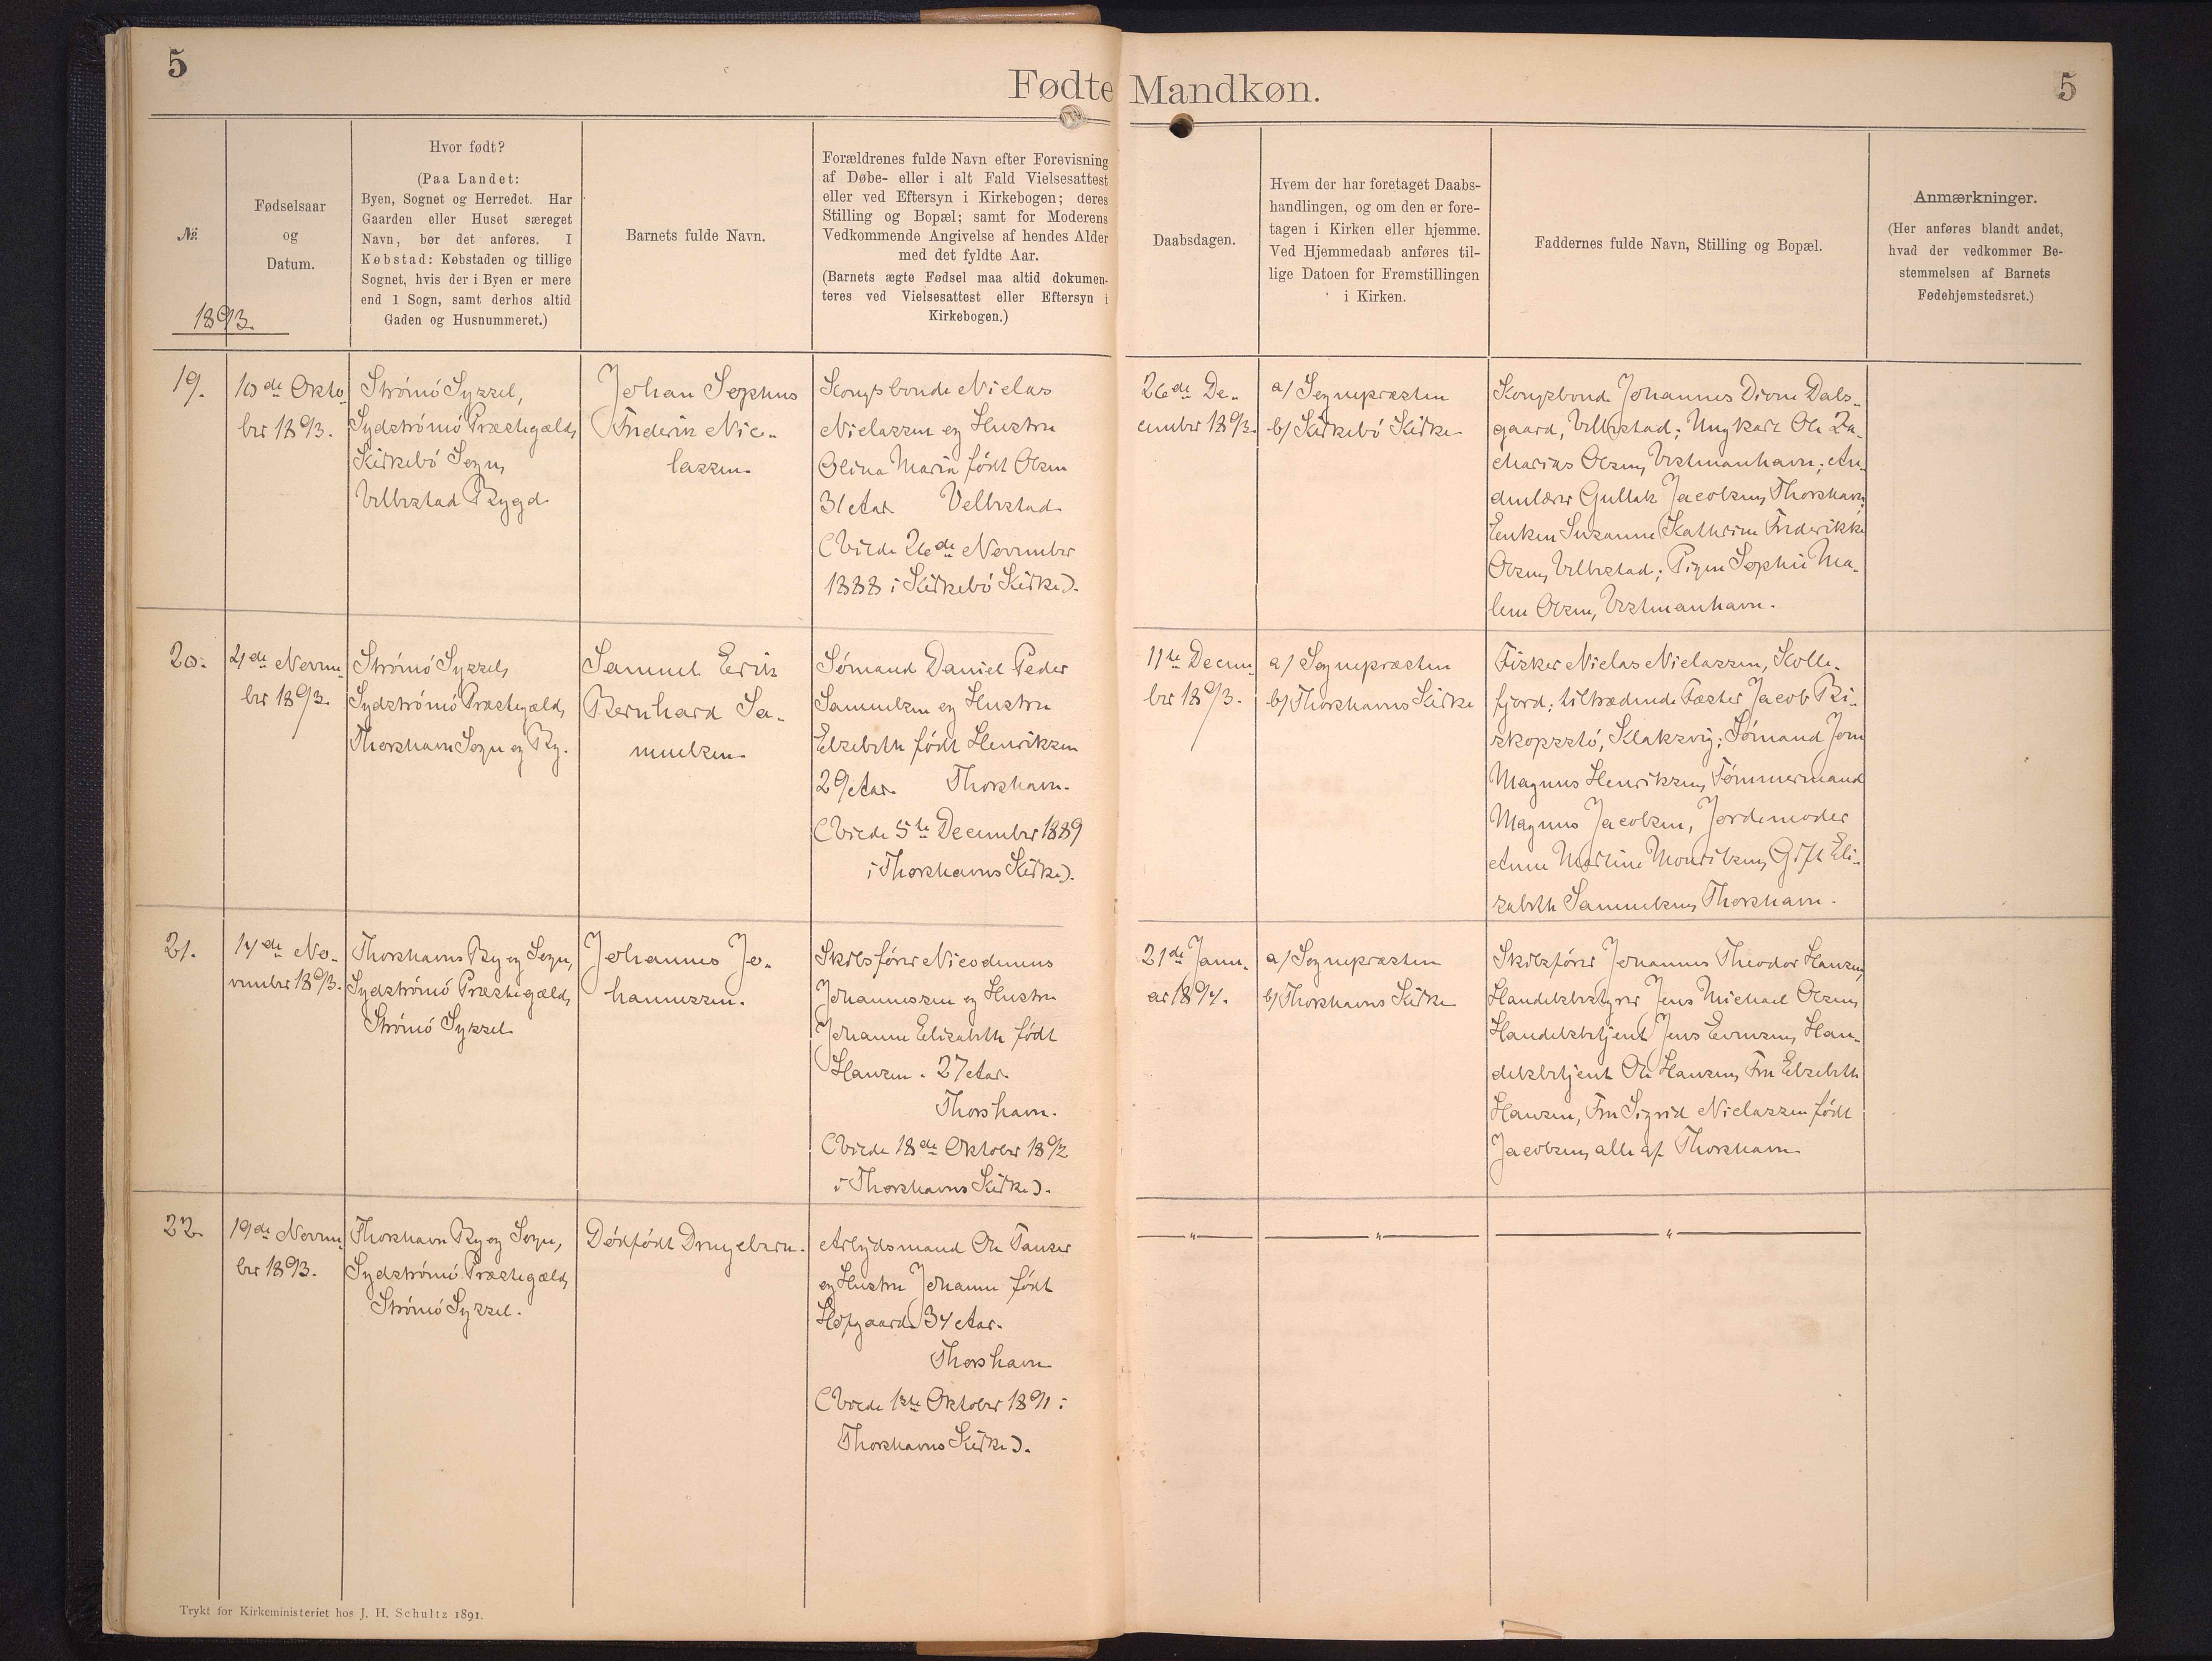 5
Fødte Mandkøn.
5
No.
1893.
Fødselsaar
og
Datum.
Hvor født?
(Paa Landet:
Byen, Sognet og Herredet. Har
Gaarden eller Huset særeget
Navn, bør det anføres. I
Købstad: Købstaden og tillige
Sognet, hvis der i Byen er mere
end 1 Sogn, samt derhos altid
Gaden og Husnummeret.)
Barnets fulde Navn.
Forældrenes fulde Navn efter Forevisning
af Døbe- eller i alt Fald Vielsesattest
eller ved Eftersyn i Kirkebogen; deres
Stilling og Bopæl; samt for Moderens
Vedkommende Angivelse af hendes Alder
med det fyldte Aar.
(Barnets ægte Fødsel maa altid dokumen-
teres ved Vielsesattest eller Eftersyn i
Kirkebogen.)
Daabsdagen.
Hvem der har foretaget Daabs-
handlingen, og om den er fore-
tagen i Kirken eller hjemme.
Ved Hjemmedaab anføres til-
lige Datoen for Fremstillingen
i Kirken.
Faddernes fulde Navn, Stilling og Bopæl.
Anmærkninger.
(Her anføres blandt andet,
hvad der vedkommer Be-
stemmelsen af Barnets
Fødehjemstedsret.)
19.
10de Okto-
ber 1893.
Strømø Syssel,
Sydstrømø Præstegæld,
Kirkebø Sogn,
Velbestad Bygd
Johan Sophus
Frederik Nic-
lassen.
Kongsbonde Niclas
Niclassen og Hustru
Olina Maria født Olsen
31 Aar. Velbestad
(Viede 26de November
1888 i Kirkebø Kirke).
26de De-
cember 1893.
a/ Sognepræsten
b/ Kirkebø Kirke
Kongsbond Johannes Dione Dals-
gaard, Velbestad; Ungkarl Ole Za-
charias Olsen, Vestmanhavn; An-
denlærer Gullak Jacobsen, Thorshavn,
Enken Susanne Kathrine Frederikke
Olsen, Velbestad; Pigen Sophie Ma-
lene Olsen, Vestmanhavn.
20.
4de Novem-
ber 1893.
Strømø Syssel,
Sydstrømø Præstegæld,
Thorshavn Sogn og By.
Samuel Erik
Bernhard Sa-
muelsen.
Sømand Daniel Peder
Samuelsen og Hustru
Elsebeth født Henriksen
29 Aar. Thorshavn.
(Viede 5te December 1889
i Thorshavns Kirke).
11te Decem-
ber 1893.
a/ Sognepræsten
b/ Thorshavns Kirke
Fisker Niclas Niclassen, Kolle-
fjord; tiltrædende Fæster Jacob Bi-
skopsstø, Klaksvig; Sømand Joen
Magnus Henriksen, Tømmermand
Magnus Jacobsen, Jordemoder
Anne Martine Mouritsen, Gift Eli-
sabeth Samuelsen, Thorshavn.
21.
14de No-
vember 1893.
Thorshavns By og Sogn,
Sydstrømø Præstegæld,
Strømø Syssel
Johannes Jo-
hannessen.
Skibsfører Nicodemus
Johannessen og Hustru
Johanne Elisabeth født
Hansen. 27 Aar.
Thorshavn.
(Viede 18de Oktober 1892
i Thorshavns Kirke).
21de Janu-
ar 1894.
a/ Sognepræsten
b/ Thorshavns Kirke
Skibsfører Johannes Theodor Hansen,
Handelsbestyrer Jens Michael Olsen,
Handelsbetjent Jens Evensen, Han-
delsbetjent Ole Hansen, Fru Elsebeth
Hansen, Fru Sigrid Niclassen født
Jacobsen, alle af Thorshavn
22.
19de Novem-
ber 1893.
Thorshavn By og Sogn,
Sydstrømø Præstegæld,
Strømø Syssel.
Dødfødt Drengebarn.
Arbejdsmand Ole Tauser
og Hustru Johanne født
Hofgaard 34 Aar.
Thorshavn
(Viede 1ste Oktober 1891 i
Thorshavns Kirke).
"
"
"
Trykt for Kirkeministeriet hos J. H. Schultz 1891.